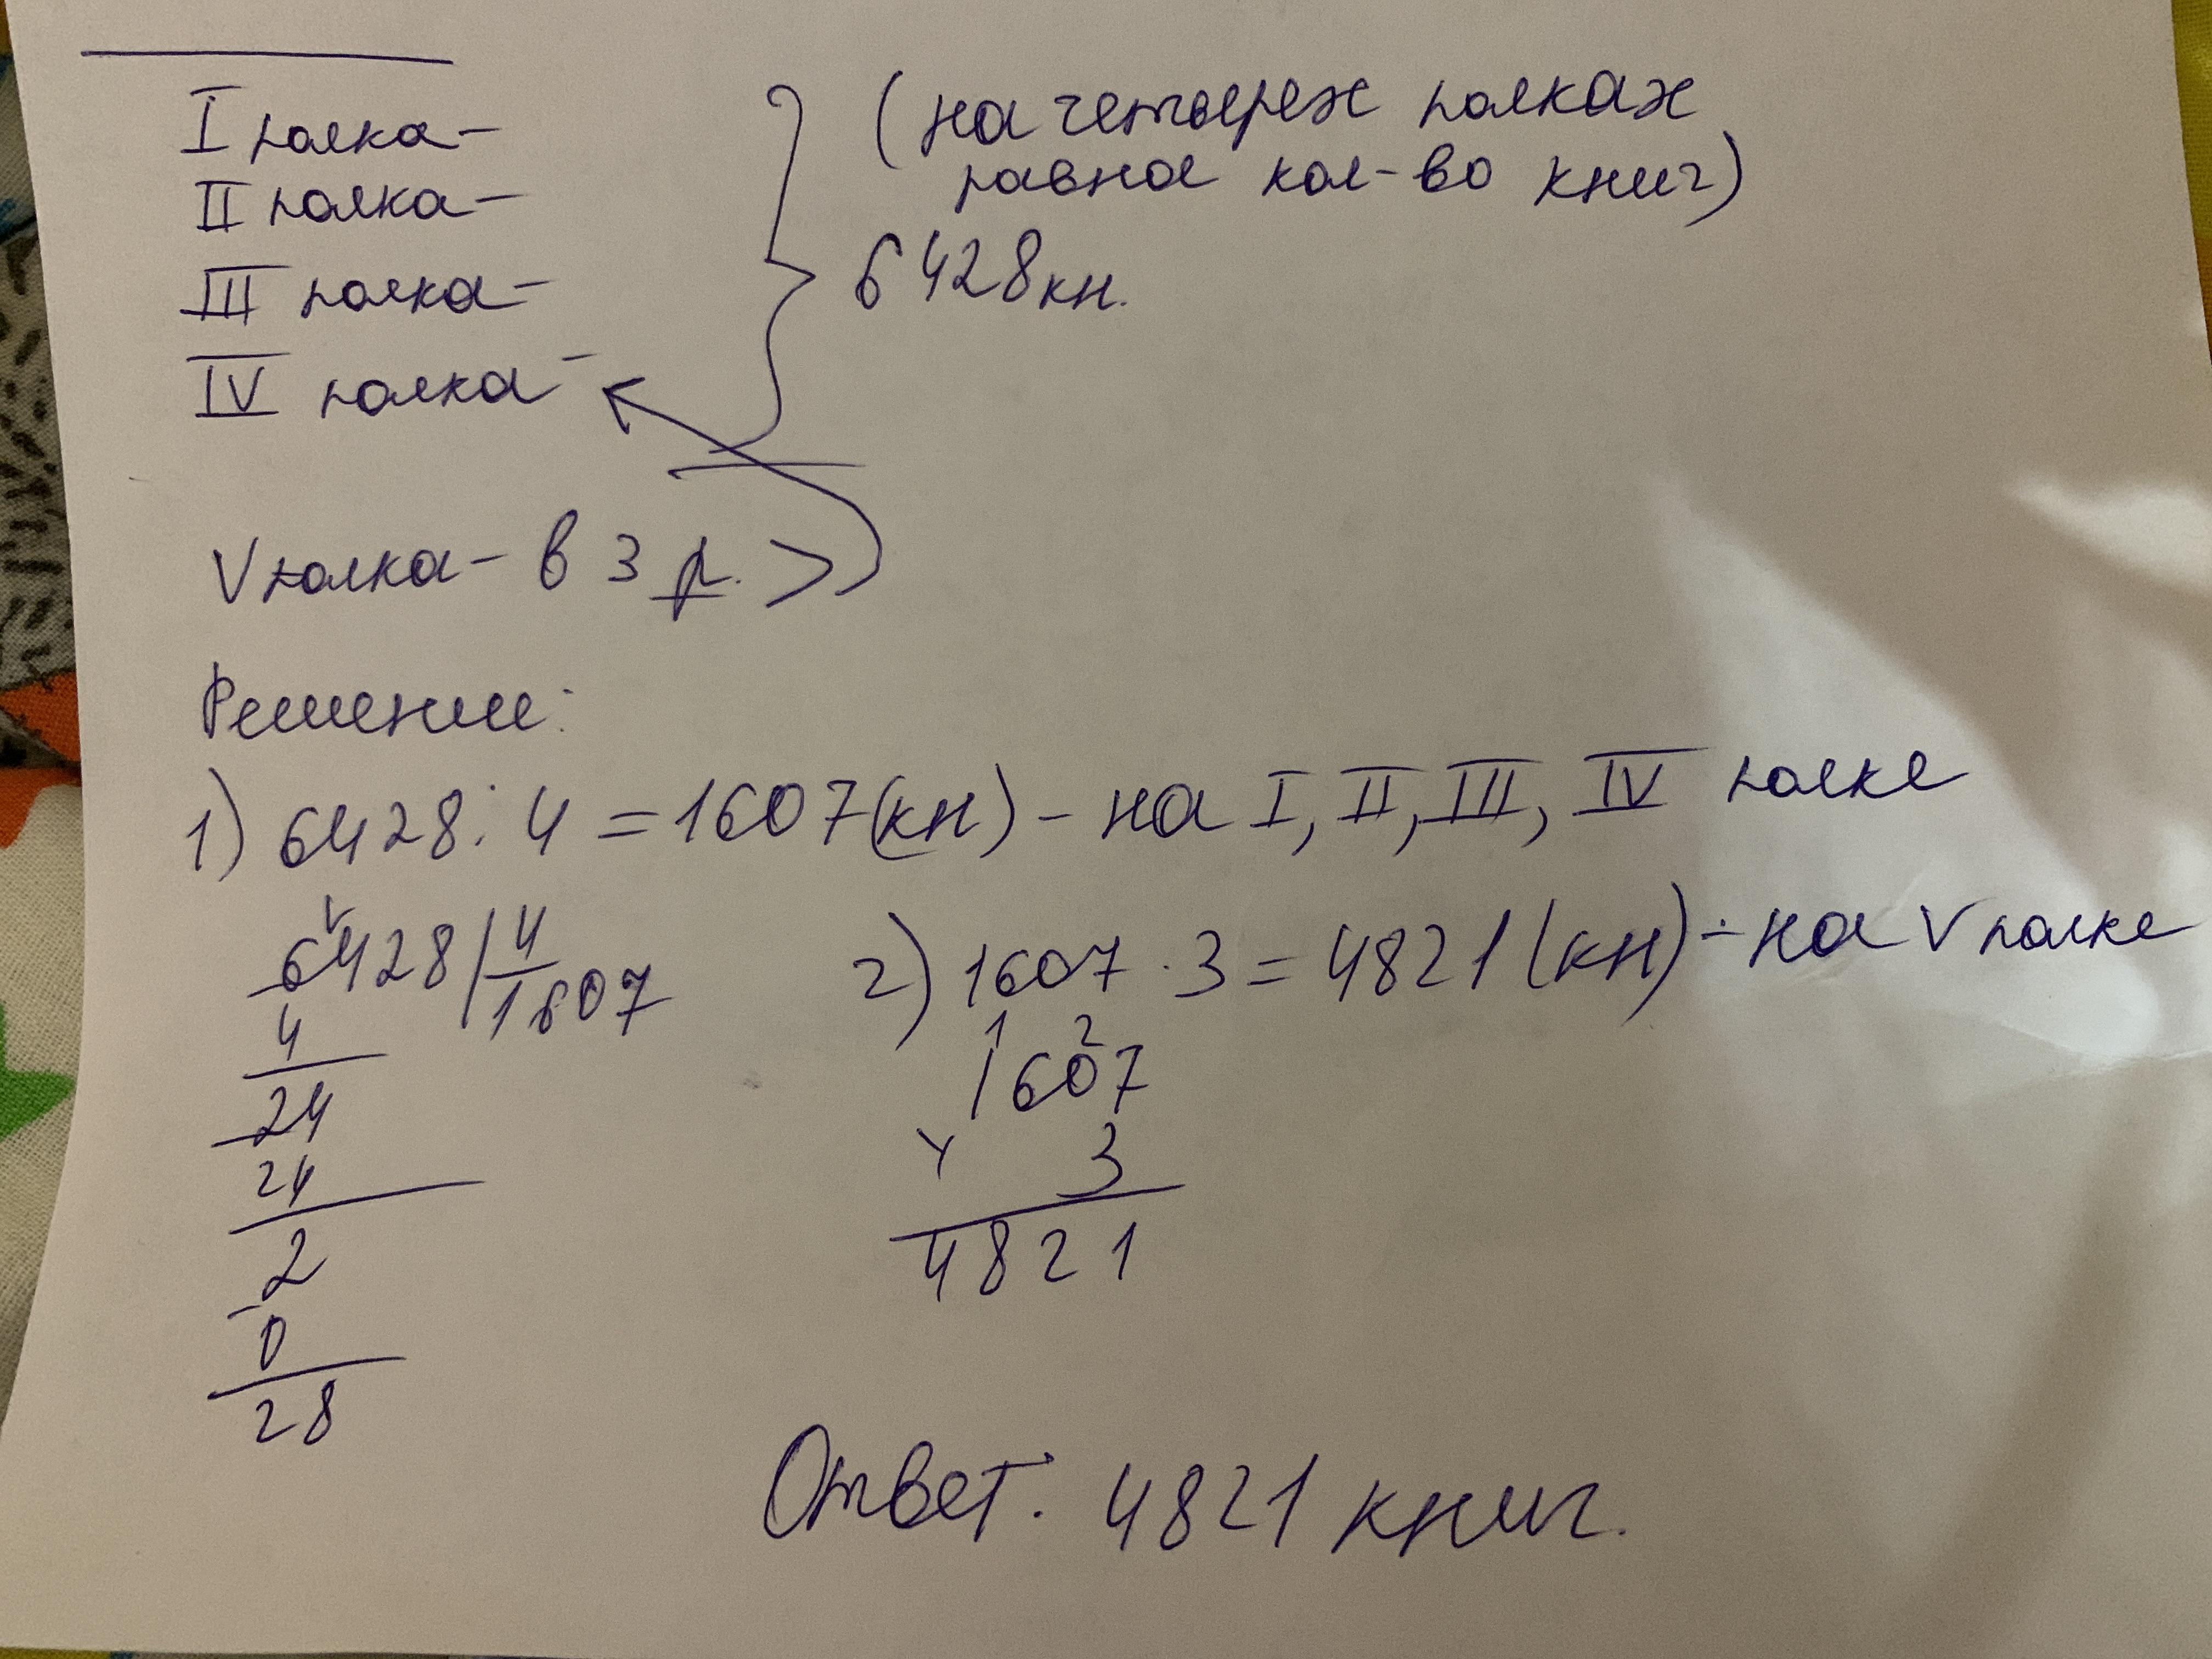 I полка-
II полка-
III полка-
IV полка-
(на четырех полках
равное кол-во книг)
6428 кн.
V полка- в 3 р. >
Решение:
1) 6428 : 4 = 1607 (кн) - на I, II, III, IV полке
6428 | 4
1607
4
24
24
2
0
28
2) 1607 · 3 = 4821 (кн) - на V полке
1 2
1607
× 3
4821
Ответ: 4821 книг.